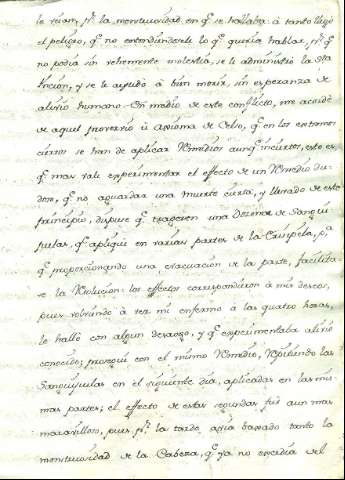 le reían, pr. la monstruosidad en q.e se hallaba: à tanto llegó
el peligro, q.e no entendiendosele lo q.e queria hablar, pr. q.e
no podia sin vehemente molestia, se le administró la Sta
Vncion, y se le ayudó à bien morir, sin esperanza de
alivio humano. En medio de este conflicto, me acordé
de aquel proverbio ù axioma de Celso, q.e en los extremos
ciertos se han de aplicar Remedios aunq.e inciertos, esto es
q.e mas vale experimentar el effecto de un Remedio du-
doso, q.e no aguardar una muerte cierta, y llevado de este
principio, dispuse q.e trageren una Dozena de Sangui-
juelas, q.e apliqué en varias partes de la Erisipela, pa.
q.e proporcionando una evacuacion de la parte, facilita-
se la Resolucion: los effectos correspondieron à mis deseos,
pues volviendo à ver mi enfermo à las quatro horas,
le hallé con algun desaogo, y q.e experimentaba alivio
conocido; proseguí con el mismo Remedio, repitiendo las
Sanguijuelas en el siguiente dia, aplicadas en las mis-
mas partes; el effecto de estas segundas fué aun mas
maravilloso, pues pr. la tarde avia baxado tanto la
monstruosidad de la Cabeza, q.e ya no excedia del